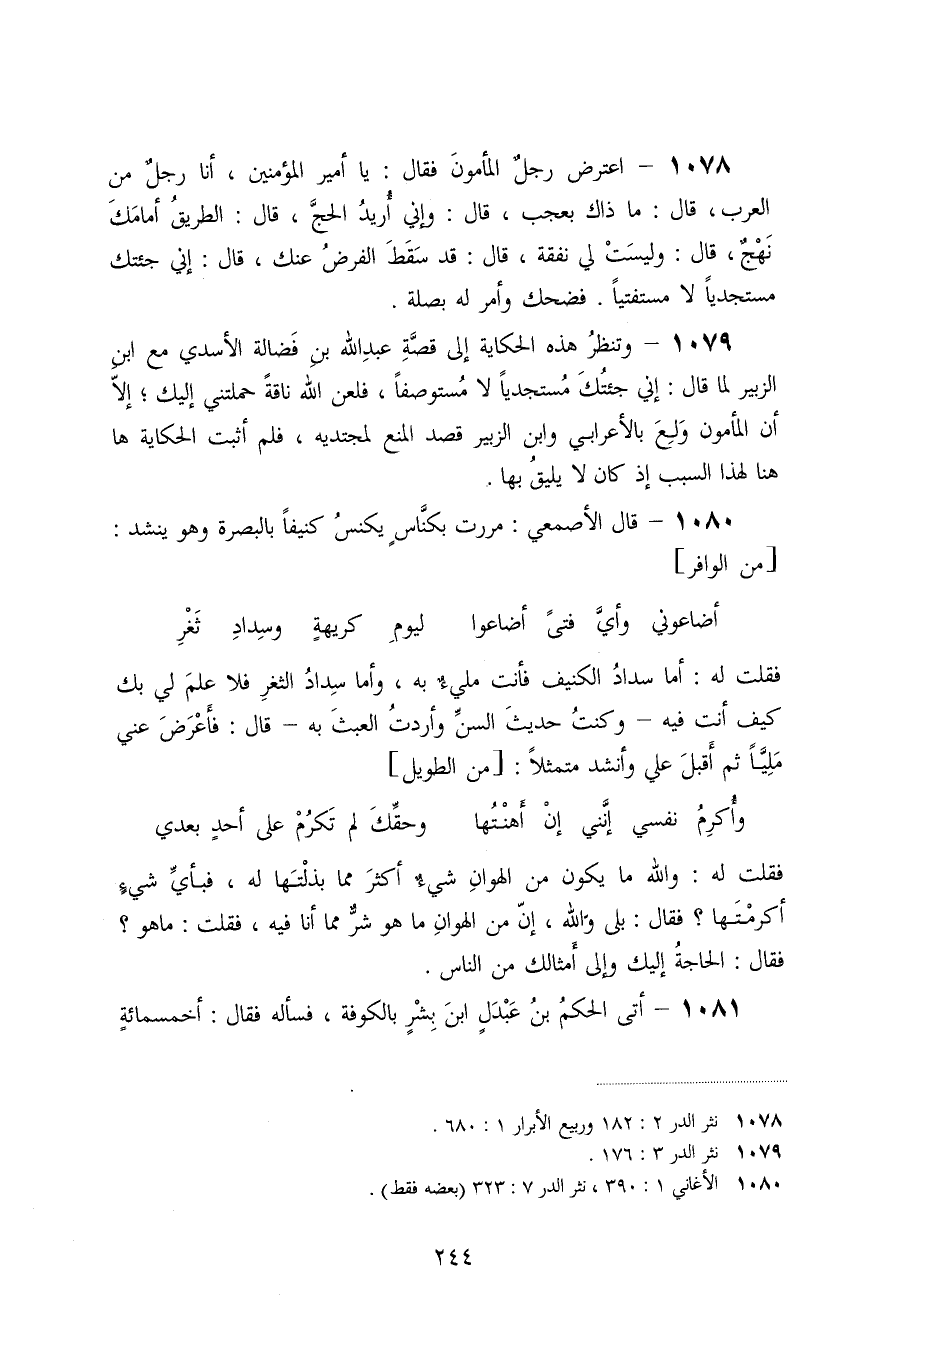 ١٠٧٨ – اعترض رجلٌ المأمونَ فقال : يا أمير المؤمنين ، أنا رجلٌ من
العرب، قال : ما ذاك بعجب ، قال : وإني أُريدُ الحجَّ ، قال : الطريقُ أمامَكَ
نَهْجٌ، قال : وليسَتْ لي نفقة ، قال : قد سَقَطَ الفرضُ عنك ، قال : إني جئتك
مستجدياً لا مستفتياً . فضحك وأمر له بصلة .
١٠٧٩ – وتنظرُ هذه الحكاية إلى قصَّةِ عبدِالله بنِ فَضالة الأسدي مع ابنِ
الزبير لما قال : إني جئتُكَ مُستجدياً لا مُستوصفاً ، فلعن الله ناقةً حملتني إليك ؛ إلاّ
أن المأمون وَلِعَ بالأعرابي وابن الزبير قصد المنع لمجتديه ، فلم أثبت الحكاية ها
هنا لهذا السبب إذ كان لا يليقُ بها .
١٠٨٠ – قال الأصمعي : مررت بكنَّاسٍ يكنسُ كنيفاً بالبصرة وهو ينشد :
[من الوافر]
أضاعوني وأيَّ فتىً أضاعوا ليومِ كريهةٍ وسِدادِ ثَغْرِ
فقلت له : أما سدادُ الكنيف فأنت مليءٌ به ، وأما سِدادُ الثغرِ فلا علمَ لي بك
كيف أنت فيه – وكنتُ حديثَ السنِّ وأردتُ العبثَ به – قال : فأَعْرَضَ عني
مَلِيَّاً ثم أَقبلَ علي وأنشد متمثلاً : [من الطويل]
وأُكرِمُ نفسي إنَّني إنْ أَهنْتُها وحقِّكَ لم تَكرُمْ على أحدٍ بعدي
فقلت له : والله ما يكون من الهوانِ شيءٌ أكثرَ مما بذلْتَها له ، فبأيِّ شيءٍ
أكرمْتَها ؟ فقال : بلى والله ، إنّ من الهوانِ ما هو شرٌّ مما أنا فيه ، فقلت : ماهو ؟
فقال : الحاجةُ إليك وإلى أمثالك من الناس .
١٠٨١ – أتى الحكمُ بنُ عَبْدَلٍ ابنَ بِشْرٍ بالكوفة ، فسأله فقال : أخمسمائةٍ
١٠٧٨ نثر الدر ٢ : ١٨٢ وربيع الأبرار ١ : ٦٨٠ .
١٠٧٩ نثر الدر ٣ : ١٧٦ .
١٠٨٠ الأغاني ١ : ٣٩٠ ، نثر الدر ٧ : ٣٢٣ (بعضه فقط) .
٢٤٤